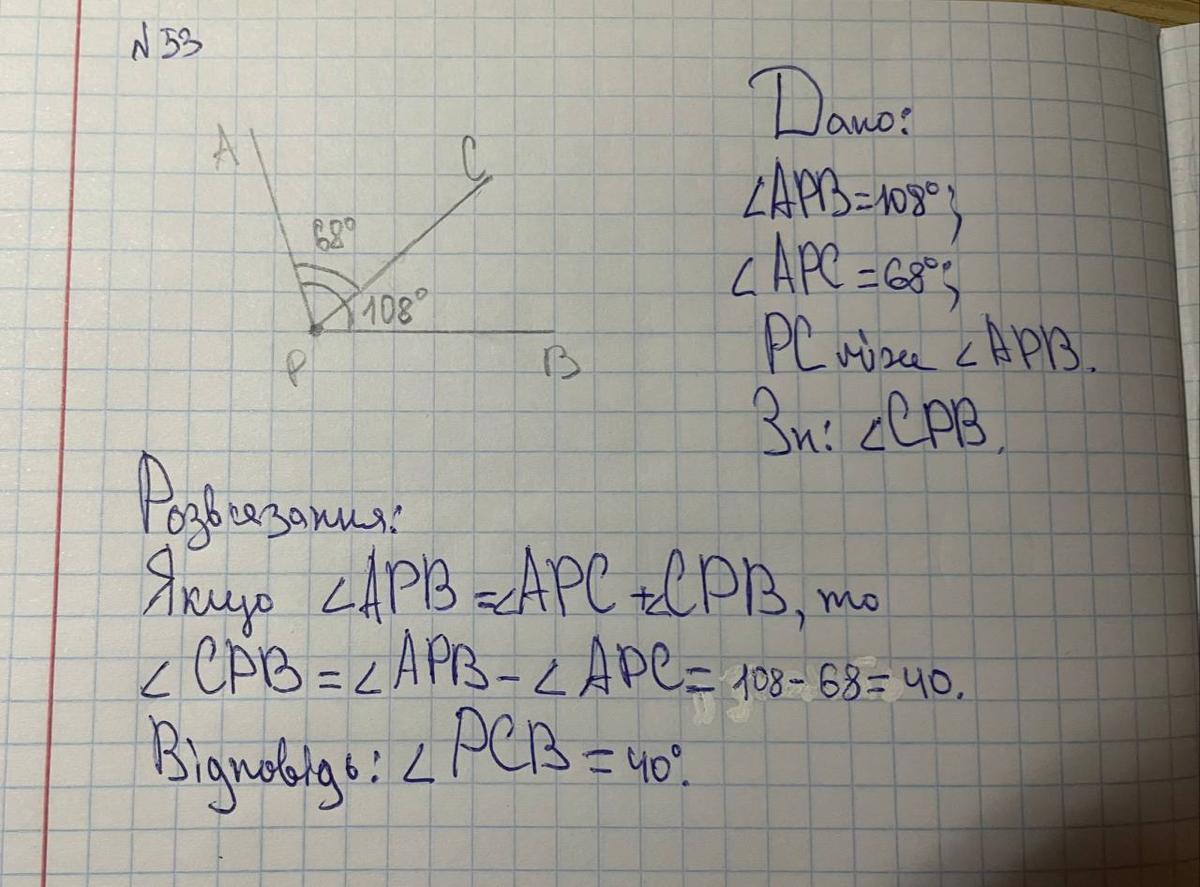 N 53
A
C
68°
108°
P
B
Дано:
∠APB=108°;
∠APC=68°;
PC між ∠APB.
Зн: ∠CPB.
Розвязання:
Якщо ∠APB=∠APC+∠CPB, то
∠CPB=∠APB-∠APC=108-68=40.
Відповідь: ∠PCB=40°.